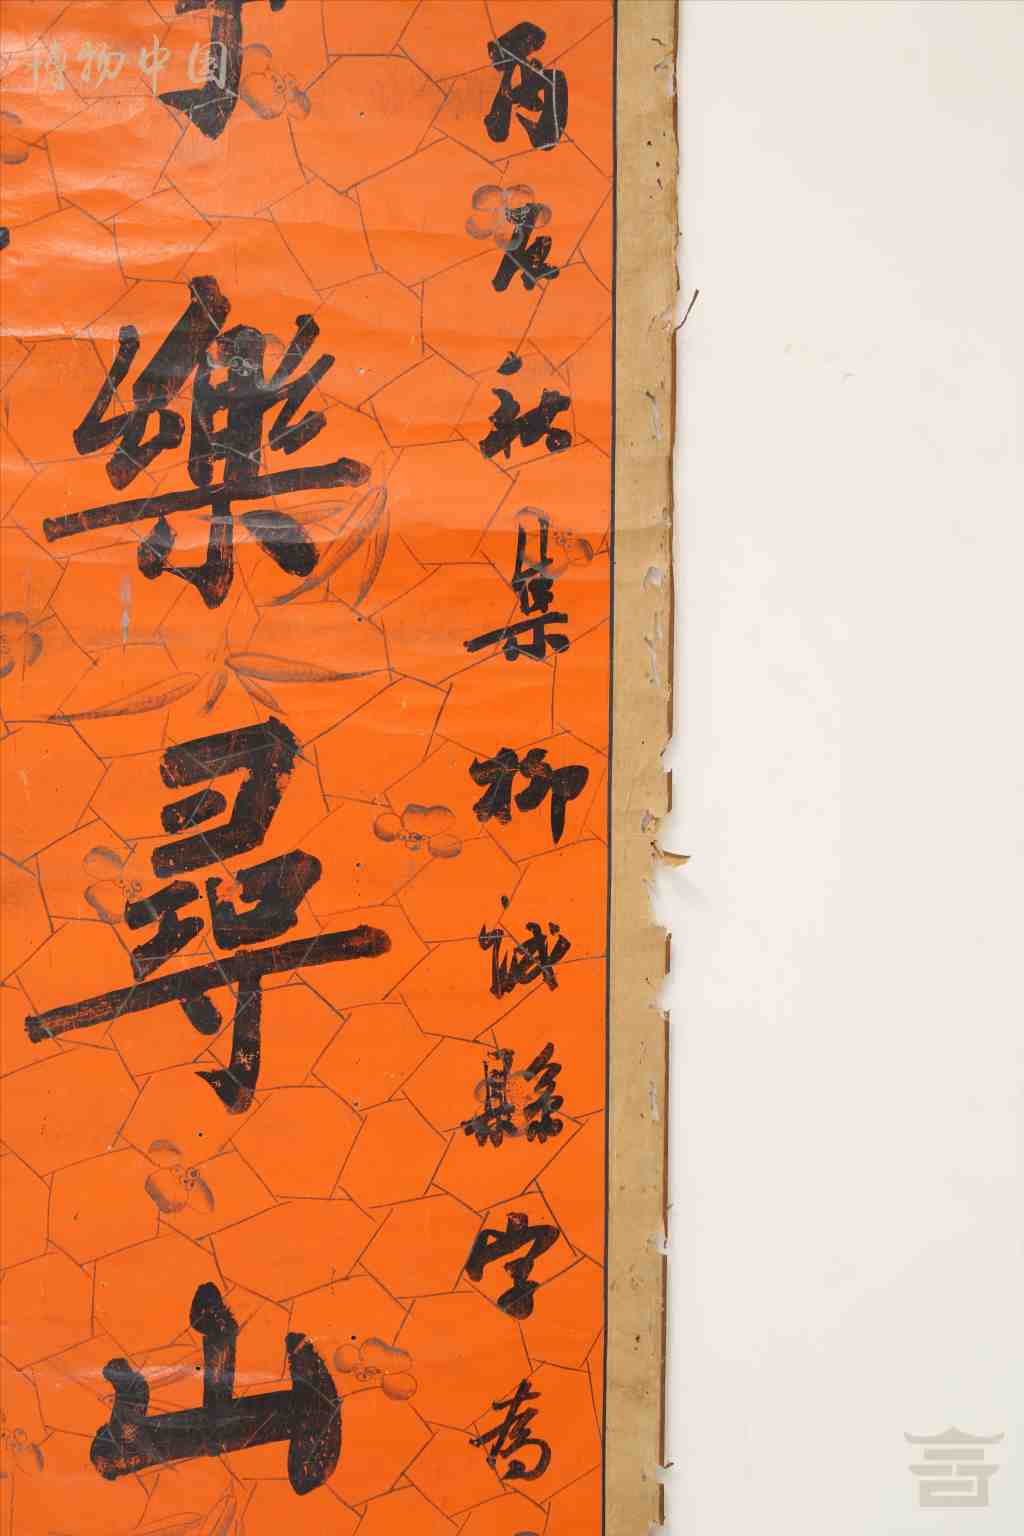 博物中国
丙辰秋集柳誠縣字為
樂尋山